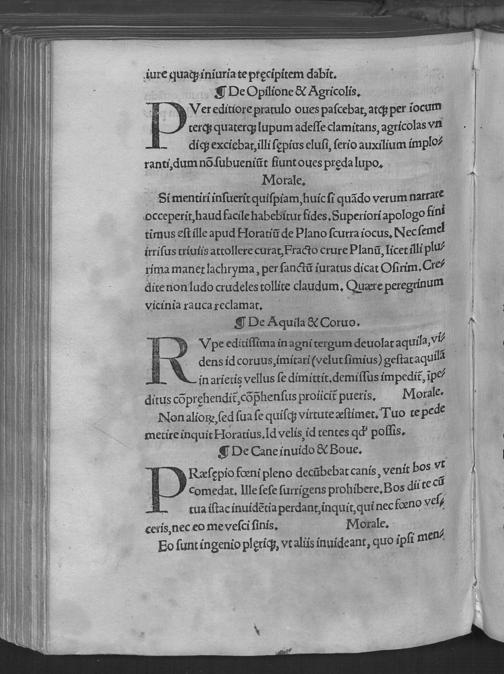 iure quaqꝫ iniuria te pręcipitem dabit̃.
¶ De Opilione & Agricolis.
PVer editiore pratulo oues pascebat, atqꝫ per iocum
terqꝫ quaterqꝫ lupum adesse clamitans, agricolas vn
diqꝫ exciebat, illi sępius elusi, serio auxilium implo⸗
ranti, dum nõ subueniũt fiunt oues pręda lupo.
Morale.
Si mentiri insuerit quispiam, huic si quãdo verum narrare
occeperit, haud facile habebitur fides. Superiori apologo fini
timus est ille apud Horatiũ de Plano scurra iocus. Nec semel
irrisus triuiis attollere curat, Fracto crure Planũ, licet illi plu⸗
rima manet lachryma, per sanctũ iuratus dicat Osirim. Cre⸗
dite non ludo crudeles tollite claudum. Quære peregrinum
vicinia rauca reclamat.
¶ De Aquila & Coruo.
RVpe editissima in agni tergum deuolat aquila, vi⸗
dens id coruus, imitari (velut simius) gestat aquilã
in arietis vellus se dimittit. demissus impedit̃, ĩpe⸗
ditus cõpręhendit̃, cõp̃hensus proiicit̃ pueris. Morale.
Non alioꝝ, sed sua se quisqꝫ virtute æstimet. Tuo te pede
metire inquit Horatius. Id velis, id tentes qd̕ possis.
¶ De Cane inuido & Boue.
PRæsępio fœni pleno decũbebat canis, venit bos vt
comedat. Ille sese surrigens prohibere. Bos dii te cũ
tua istac inuidẽtia perdant, inquit, qui nec fœno ves⸗
ceris, nec eo me vesci sinis. Morale.
Eo sunt ingenio plęriqꝫ, vt aliis inuideant, quo ipsi men⸗